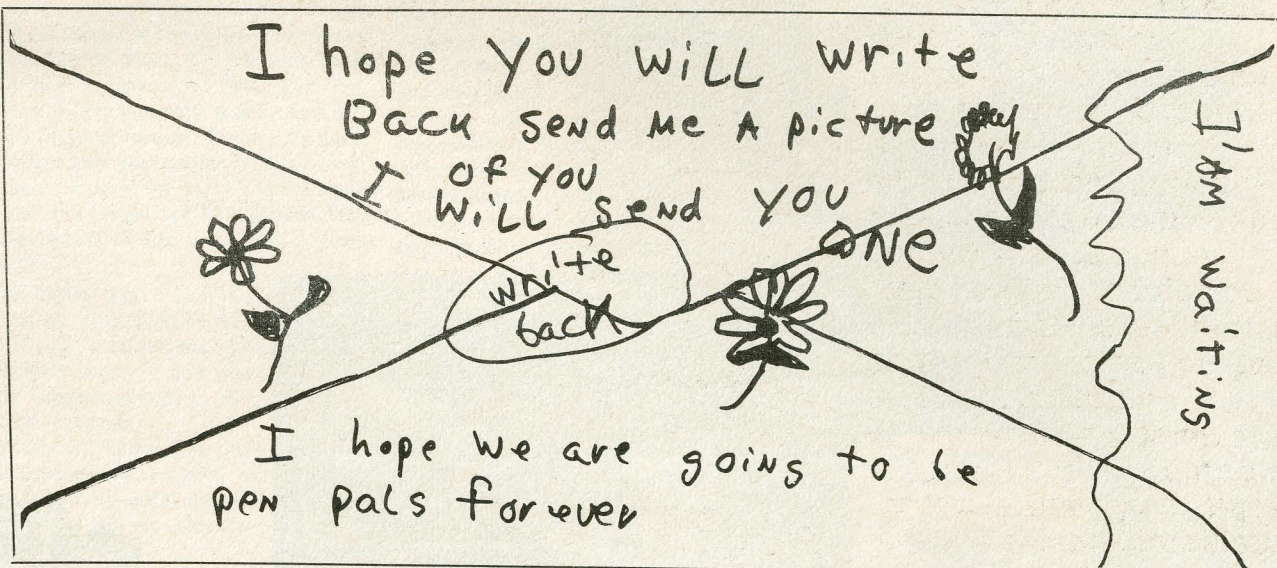 I hope You WiLL write
Back send Me A picture
of you
I WiLL send you
ONE
write
back
I hope we are going to be
pen pals forever
I'AM waiting